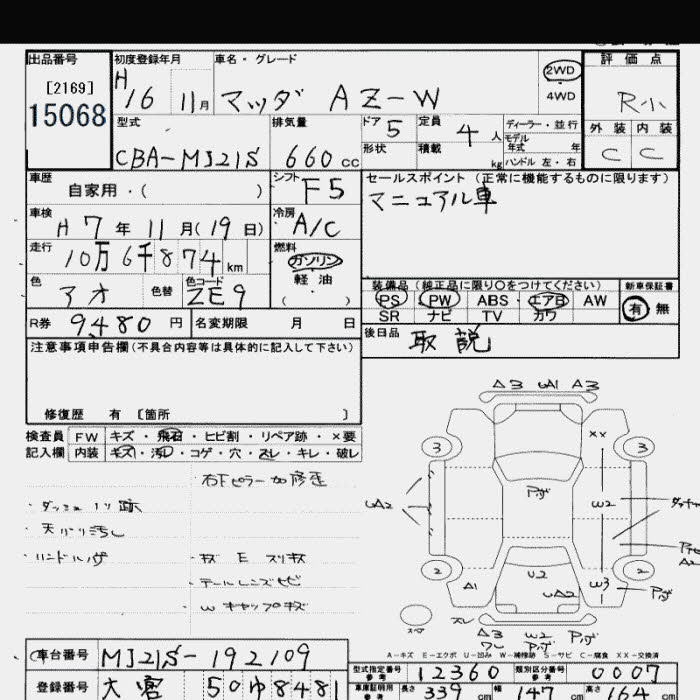 出品番号 初度登録年月 車名・グレード 2WD 評価点
[2169] H 16 11月 マツダ AZ-W 4WD R小
15068 型式 排気量 ドア 5 定員 4人 ディーラー・並行 外装 内装
CBA-MJ21S 660cc 形状 積載 kg モデル年式 年 C C
ハンドル 左・右
車歴 シフト F5 セールスポイント (正常に機能するものに限ります)
自家用・( ) マニュアル車
車検 H 7年 11月(19日) 冷房 A/C
走行 10万6千874km 燃料 ガソリン
軽油
( )
色 アオ 色替 色コード ZE9 装備品(純正品に限り○をつけてください) 新車保証書
PS PW ABS・エアB AW 有 無
SR ナビ TV カワ
R券 9480円 名変期限 月 日 後日品 取説
注意事項申告欄(不具合内容等は具体的に記入して下さい)
修復歴 有 [箇所 ]
検査員 FW キズ・飛石・ヒビ割・リペア跡・×要
記入欄 内装 キズ・汚レ・コゲ・穴・スレ・キレ・破レ
右下ピラー加修歪
ダッシュ 跡
天バリ汚し
ハンドル
キズ E スリキズ
テールレンズヒビ
W キャップキズ
A3 UA1 A3
XX
3 3
UA2 W2
2 U2 2
A1 UA2 W3
スレ
A3 W2
A-キズ E-エクボ U-凹み W-補修跡 S-サビ C-腐食 XX-交換済
車台番号 MJ21S-192109 型式指定番号 参考 12360 類別区分番号 参考 0007
登録番号 大宮 50ゆ8481 車庫証明用 参考 長さ 339cm 幅 147cm 高さ 164cm